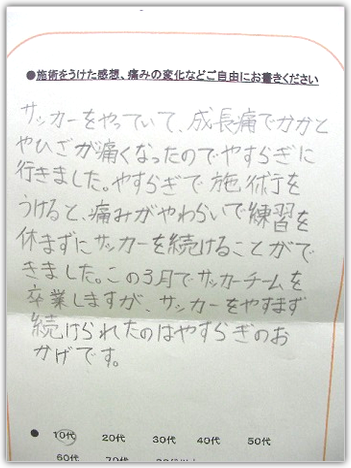 ●施術をうけた感想、痛みの変化などご自由にお書きください
サッカーをやっていて、成長痛でかかと
やひざが痛くなったのでやすらぎに
行きました。やすらぎで施術行を
うけると、痛みがやわらいで練習を
休まずにサッカーを続けることがで
きました。この3月でサッカーチームを
卒業しますが、サッカーをやすまず
続けられたのはやすらぎのお
かげです。
● 10代 20代 30代 40代 50代
60代 70代